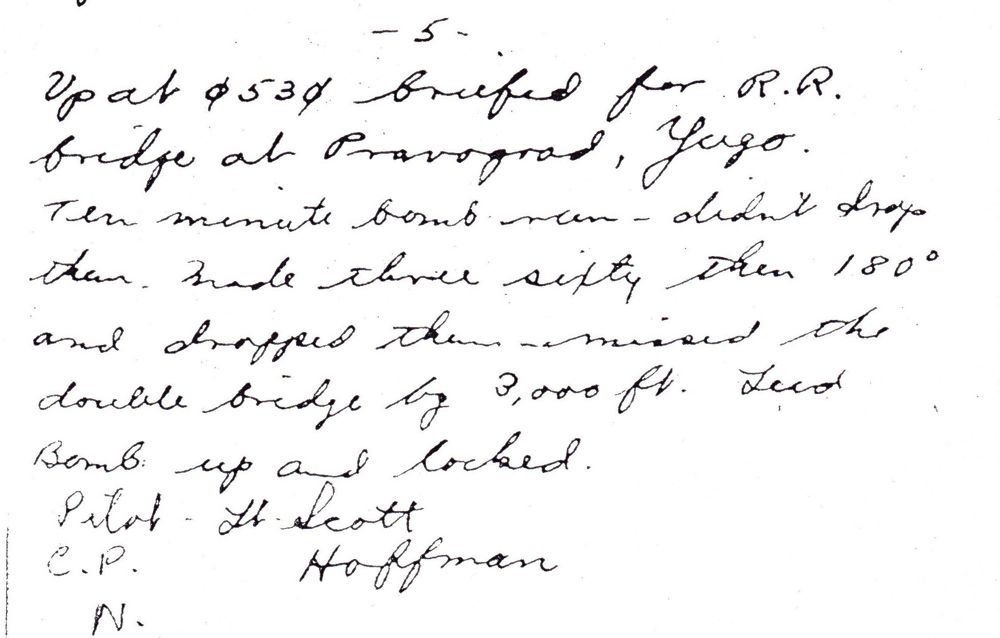 - 5 -
Up at 0530 briefed for R.R.
bridge at Pravograd, Yugo.
Ten minute bomb run - didn't drop
them. Made three sixty then 180°
and dropped them - missed the
double bridge by 3,000 ft. Lead
Bomb. up and locked.
Pilot - Lt. Scott
C.P. Hoffman
N.